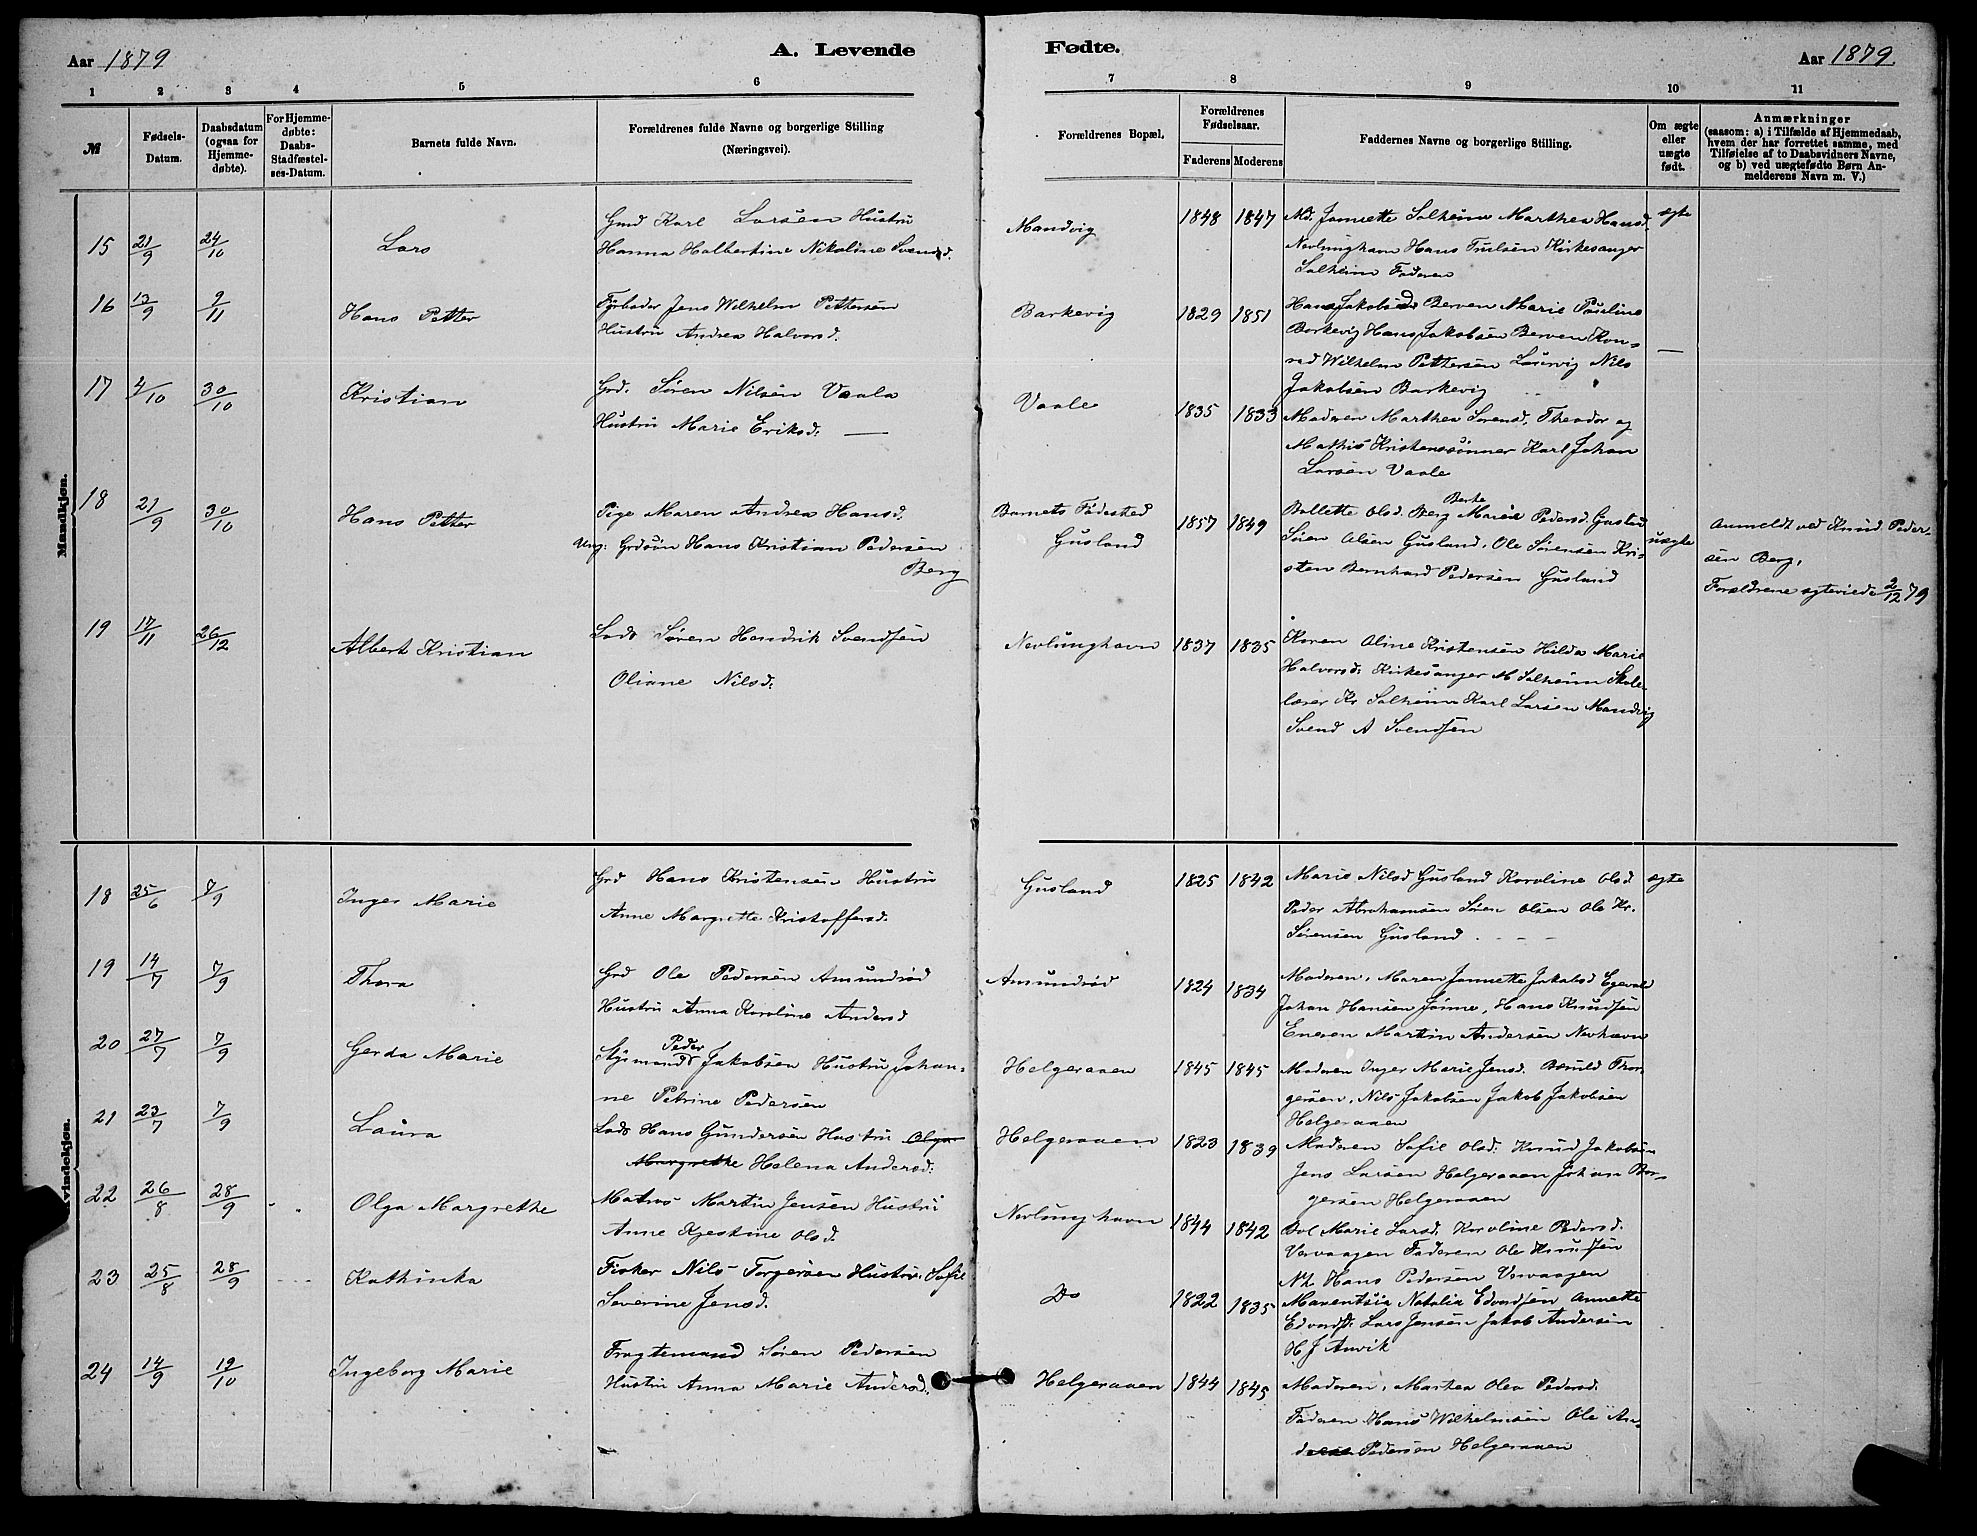 Aar 1879
A. Levende
Fødte.
Aar 1879.
1 2 3 4 5 6
7 8 9 10 11
№
Fødsels-
Datum.
Daabsdatum
(ogsaa for
Hjemme-
døbte).
For Hjemme-
døbte:
Daabs-
Stadfæstel-
ses-Datum.
Barnets fulde Navn.
Forældrenes fulde Navne og borgerlige Stilling
(Næringsvei).
Forældrenes Bopæl.
Forældrenes
Fødselsaar.
Faderens Moderens
Faddernes Navne og borgerlige Stilling.
Om ægte
eller
uægte
født.
Anmærkninger
(saasom: a) i Tilfælde af Hjemmedaab,
hvem der har forrettet samme, med
Tilføielse af to Daabsvidners Navne,
og b) ved uægtefødte Børn An-
melderens Navn m. V.)
Mandkjøn.
15 21/9 24/10 Lars
Gmd Karl Larsen Hustru
Hanna Halbertine Nikoline Svendsd.
Mandvig 1848 1847
Md. Jannette Solheim Marthea Hansd.
Nevlunghavn Hans Truelsen Kirkesanger
Solheim Faderen
ægte
16 13/9 9/11 Hans Petter
Fyrbøder Jens Wilhelm Pettersen
Hustru Andrea Halvorsd.
Barkevig 1829 1851
Hans Jakobsen Berven Marie Pauline
Barkevig Hans Jakobsen Berven Kon-
rad Wilhelm Pettersen Laurvig Nils
Jakobsen Barkevig
—
17 4/10 30/10 Kristian
Grd. Søren Nilsen Vaale
Hustru Marie Eriksd. —
Vaale 1835 1833
Moderen Marthea Sørensd. Theodor og
Mathis Kristenssønner Karl Johan
Larsen Vaale
18 21/9 30/10 Hans Petter
Pige Maren Andrea Hansd.
Ung. Grdsøn Hans Kristian Pedersen
Berg
Barnets Fødested
Gusland
1857 1849
Bollette Olsd. Berg Berte Marie Pedersd. Gusland
Søren Olsen Gusland, Ole Sørensen Kri-
sten Bernhard Pedersen Gusland
uægte
Anmeldt ved Knud Peder-
sen Berg.
Forældrene ægteviede 2/12 79
19 17/11 26/12 Albert Kristian
Lods Søren Hendrik Svendsen
Oliane Nilsd.
Nevlunghavn 1837 1835
Karen Oline Kristensen Hilda Marie
Halvorsd. Kirkesanger M Solheim Skole-
lærer Kr Solheim Karl Larsen Mandvig
Svend A Svendsen
Kvindekjøn.
18 25/6 7/9 Inger Marie
Grd Hans Kristensen Hustru
Anne Margrethe Kristoffersd.
Gusland 1825 1842
Maris Nilsd Gusland Karoline Olsd
Peder Abrahamsen Søren Olsen Ole Kr.
Sørensen Gusland
ægte
19 14/7 7/9 Thora
Grd Ole Pedersen Amundrød
Hustru Anna Karoline Andersd
Amundrød 1824 1834
Moderen, Maren Jannette Jakobsd
Johan Hansen, Hans Knudsen
Martin Andersen Nevhavn
20 27/7 7/9 Gerda Marie
Styrmand Peder Jakobsen Hustru Johan-
ne Petrine Pedersen
Helgeraaen 1845 1845
Moderen Inger Marie Jensd.
gersen, Nils Jakobsen Jakob Jakobsen
Helgeraaen
21 23/7 7/9 Laura
Lods Hans Gundersen Hustru Olga
Margrethe Helena Andersd.
Helgeraaen 1823 1839
Moderen Sofie Olsd. Knud Jakobsen
Jens Larsen Helgeraaen Johan Bor-
gersen Helgeraaen
22 26/8 28/9 Olga Margrethe
Matros Martin Jensen Hustru
Anne Kjestine Olsd.
Nevlunghavn 1844 1842
Bol Marie Larsd. Karoline Pedersd.
Vervaagen Faderen Ole Knudsen
Nh Hans Pedersen Vervaagen
23 25/8 28/9 Kathinka
Fisker Nils Torgersen Hustru Sofie
Severine Jensd.
Do 1822 1835
Natalia Edvardsen Annette
Edvardsd. Lars Jensen Jakob Andersen
H J Anvik
24 14/9 19/10 Ingeborg Marie
Fragtemand Søren Pedersen
Hustru Anna Marie Andersd.
Helgeraaen 1844 1845
Moderen, Martea Olea Pedersd.
Faderen Hans Wilhelmsen Ole An-
Pedersen Helgeraaen